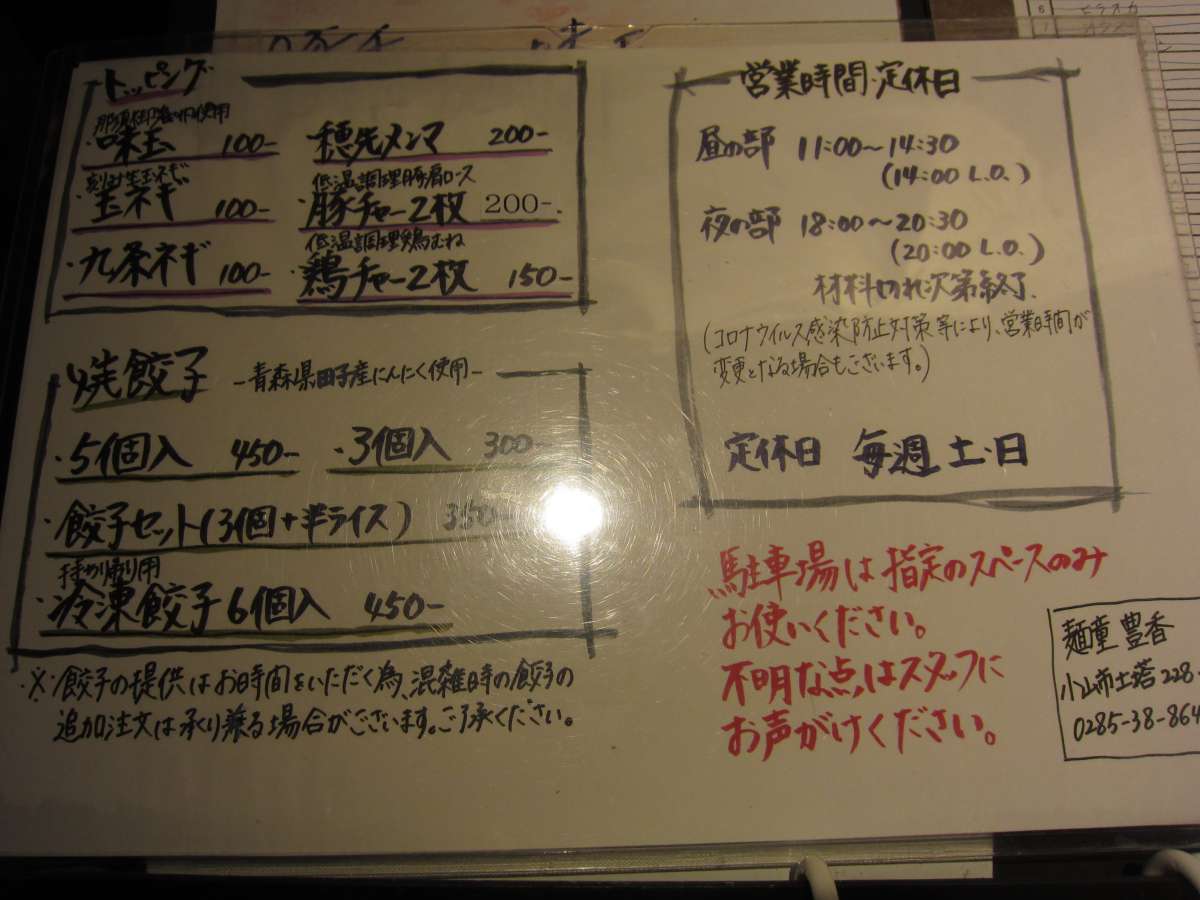 トッピング
那須御養卵使用
・味玉 100-
・穂先メンマ 200-
刻み生玉ネギ
・玉ネギ 100-
低温調理豚肩ロース
・豚チャー2枚 200-
・九条ネギ 100-
低温調理鶏むね
・鶏チャー2枚 150-
焼餃子 -青森県田子産にんにく使用-
・5個入 450-
・3個入 300-
・餃子セット(3個+半ライス) 350-
・冷凍餃子6個入 450-
※餃子の提供はお時間をいただく為、混雑時の餃子の
追加注文は承り兼る場合がございます。ご了承ください。
営業時間・定休日
昼の部 11:00〜14:30
(14:00 L.O.)
夜の部 18:00〜20:30
(20:00 L.O.)
材料切れ次第終了
(コロナウイルス感染防止対策等により、営業時間が
変更となる場合もございます。)
定休日 毎週 土・日
駐車場は指定のスペースのみ
お使いください。
不明な点はスタッフに
お声がけください。
麺童 豊香
小山市土塔228-
0285-38-864